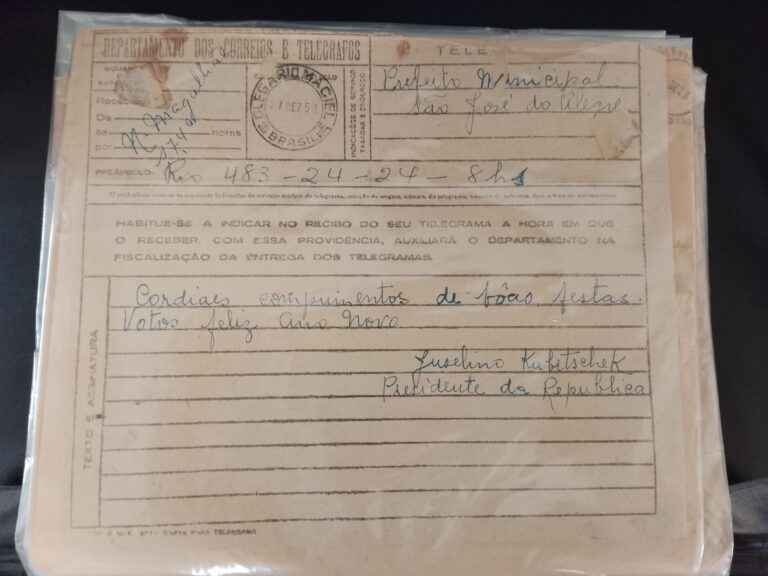 DEPARTAMENTO DOS CORREIOS E TELÉGRAFOS
TELE
Prefeito Municipal
São José do Alegre
De
às horas
por
N. Magalhães
OLEGARIO MACIEL
BRASIL
INDICAÇÕES DE SERVIÇO
TAXADAS E ENDEREÇO
PREÂMBULO:
Rio 483-24-24-8hs
HABITUE-SE A INDICAR NO RECIBO DO SEU TELEGRAMA A HORA EM QUE
O RECEBER. COM ESSA PROVIDÊNCIA, AUXILIARÁ O DEPARTAMENTO NA
FISCALIZAÇÃO DA ENTREGA DOS TELEGRAMAS.
TEXTO E ASSINATURA
Cordiaes comprimentos de bôas festas.
Votos feliz Ano Novo
Juselino Kubitschek
Presidente da Republica